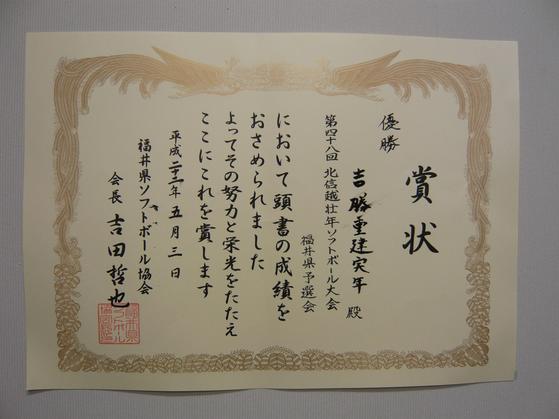 賞状
優勝
吉勝重建実年 殿
第四十八回 北信越壮年ソフトボール大会
福井県予選会
において頭書の成績を
おさめられました
よってその努力と栄光をたたえ
ここにこれを賞します
平成二十三年五月三日
福井県ソフトボール協会
会長 吉田哲也